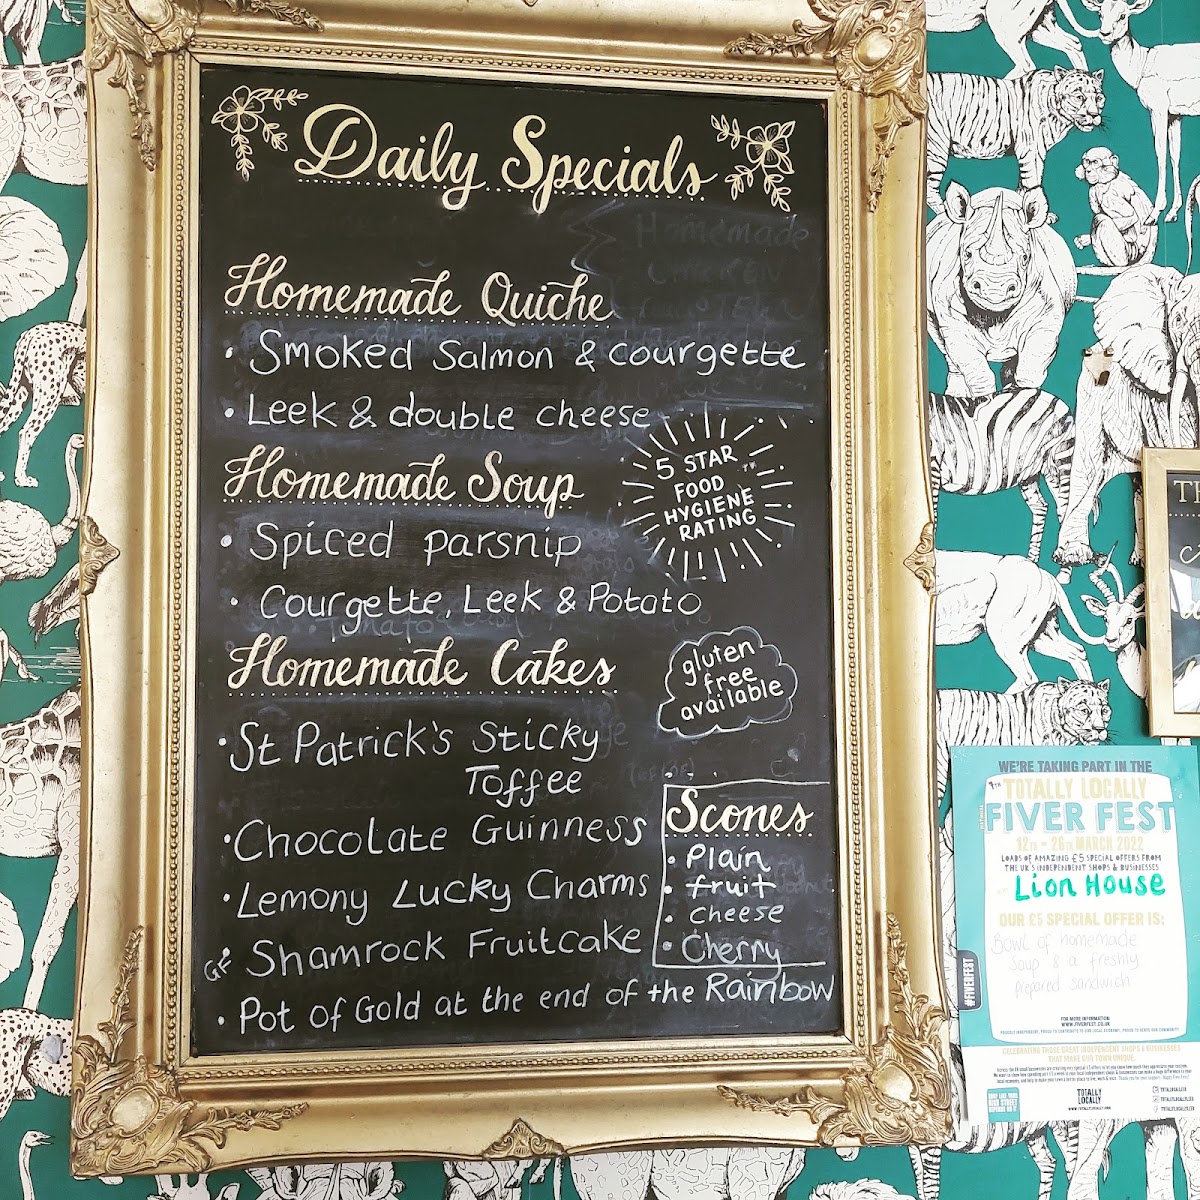 Daily Specials
Homemade Quiche
• Smoked Salmon & courgette
• Leek & double cheese
Homemade Soup
• Spiced parsnip
• Courgette, Leek & Potato
5 STAR
FOOD
HYGIENE
RATING
Homemade Cakes
gluten
free
available
• St Patrick's Sticky
Toffee
• Chocolate Guinness
• Lemony Lucky Charms
GF Shamrock Fruitcake
• Pot of Gold at the end of the Rainbow
Scones
• Plain
• fruit
• Cheese
• Cherry
Homemade
CHICKEN
Tomato
WE'RE TAKING PART IN THE
TOTALLY LOCALLY
FIVER FEST
12TH - 26TH MARCH 2022
LOADS OF AMAZING £5 SPECIAL OFFERS FROM
THE UK'S INDEPENDENT SHOPS & BUSINESSES
Lion House
OUR £5 SPECIAL OFFER IS:
Bowl of homemade
Soup & a freshly
prepared sandwich
#FIVERFEST
FOR MORE INFORMATION
WWW.FIVERFEST.CO.UK
CELEBRATING THOSE GREAT INDEPENDENT SHOPS & BUSINESSES
THAT MAKE OUR TOWN UNIQUE.
TOTALLY
LOCALLY